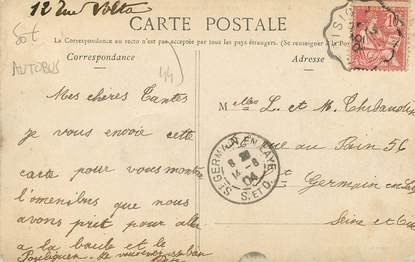 12 Rue Volta
CARTE POSTALE
La Correspondance au recto n'est pas acceptée par tous les pays étrangers. (Se renseigner à la Poste)
Correspondance
Adresse
50€
AUTOBUS
44
Mes chères Tantes
je vous envoie cette
carte pour vous montrer
l'omenibus que nous
avons prit pour aller
a la baule et le
Pouliguen
Melles L. et M. Thibaudin
rue au Pain 56
St Germain en
Seine et
ST GERMAIN EN LAYE
8
14 - 8
04
S. ET O.
10